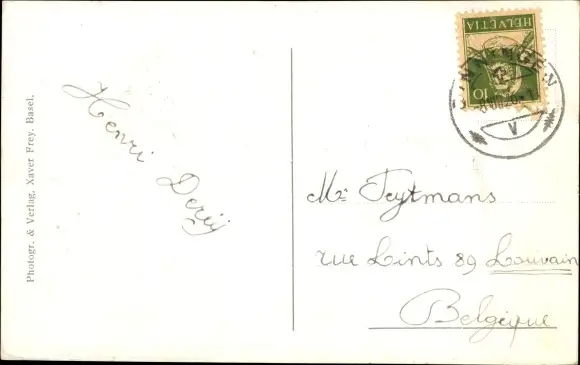 Photogr. & Verlag, Xaver Frey, Basel.
Henri
HELVETIA
10
V
Mr Teytmans
rue Lints 89 Louvain
Belgique